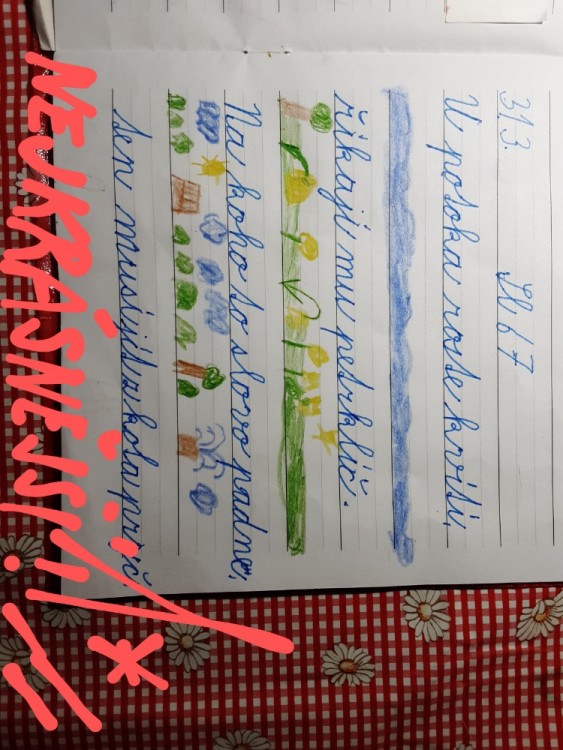 31.3. 67
U potoka roste kvítí,
říkají mu petrklíč.
Na koho to slovo padne,
ten musí jít z kola pryč
NEJKRÁSNĚJŠÍ!!!